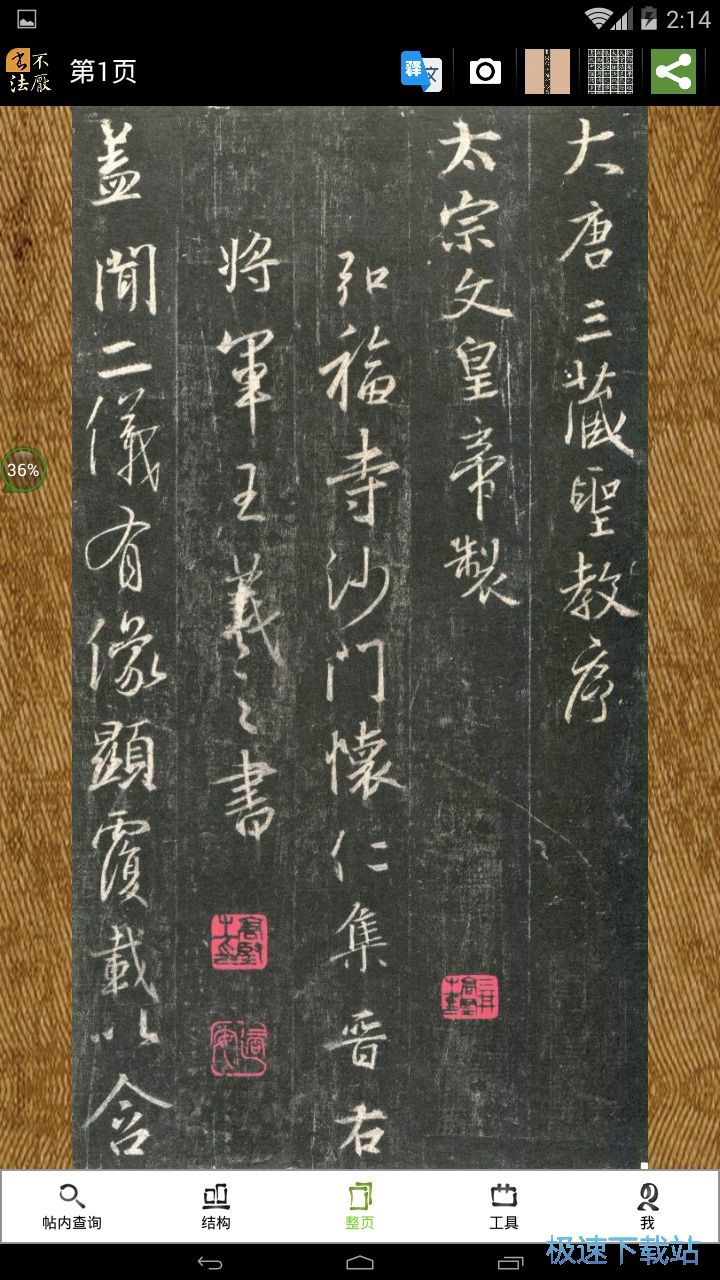 2:14
不厭
法
第1页
译 文
大唐三藏聖教序
太宗文皇帝製
弘福寺沙門懷仁集晉右
將軍王羲之書
蓋聞二儀有像顯覆載以含
36%
帖内查询 结构 整页 工具 我
极速下载站